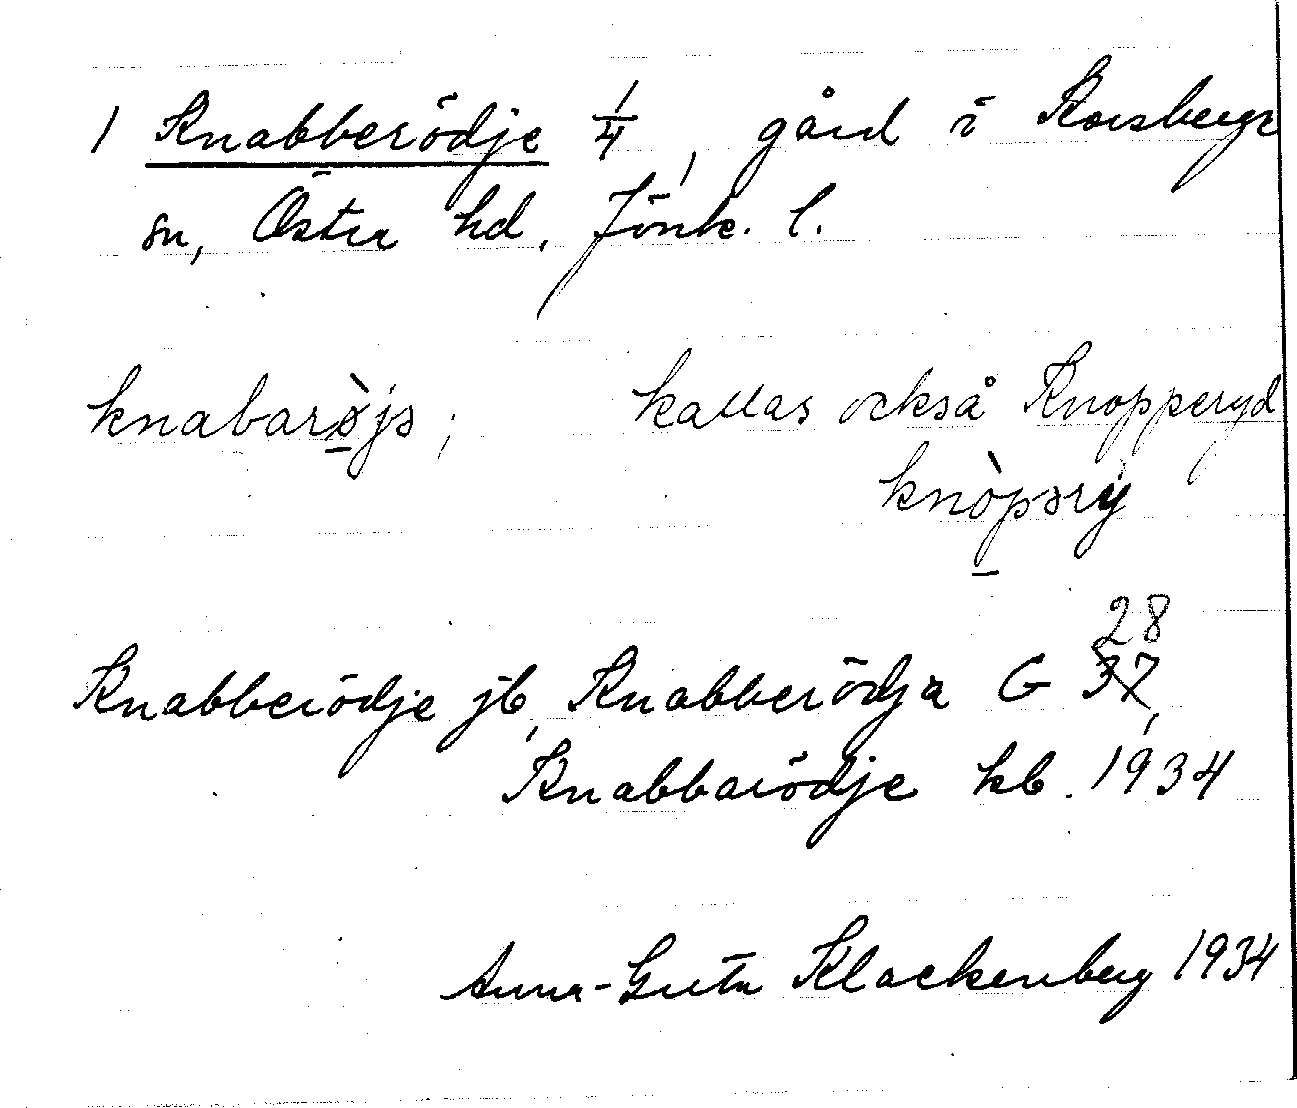 1 Knabberödje 1/4, gård i Korsberga
sn, Östra hd, Jönk. l.
knabarø̀js; kallas också Knopperyd
knòpəry
28
Knabberödje jb, Knabberödja G 37,
Knabbarödje kb. 1934
Anna-Greta Klackenberg 1934